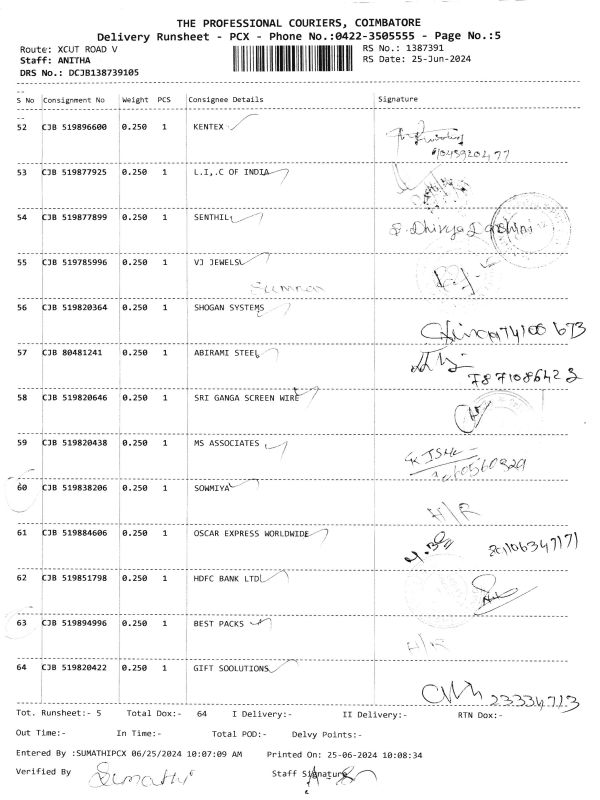 THE PROFESSIONAL COURIERS, COIMBATORE
Delivery Runsheet - PCX - Phone No.:0422-3505555 - Page No.:5
Route: XCUT ROAD V
RS No.: 1387391
Staff: ANITHA
RS Date: 25-Jun-2024
DRS No.: DCJB138739105
S No Consignment No Weight PCS Consignee Details Signature
52 CJB 519896600 0.250 1 KENTEX
53 CJB 519877925 0.250 1 L.I,.C OF INDIA
54 CJB 519877899 0.250 1 SENTHIL
55 CJB 519785996 0.250 1 VJ JEWELS
56 CJB 519820364 0.250 1 SHOGAN SYSTEMS
57 CJB 80481241 0.250 1 ABIRAMI STEEL
58 CJB 519820646 0.250 1 SRI GANGA SCREEN WIRE
59 CJB 519820438 0.250 1 MS ASSOCIATES
60 CJB 519838206 0.250 1 SOWMIYA
H/R
61 CJB 519884606 0.250 1 OSCAR EXPRESS WORLDWIDE
62 CJB 519851798 0.250 1 HDFC BANK LTD
63 CJB 519894996 0.250 1 BEST PACKS
H/R
64 CJB 519820422 0.250 1 GIFT SOOLUTIONS
Tot. Runsheet:- 5 Total Dox:- 64 I Delivery:- II Delivery:- RTN Dox:-
Out Time:- In Time:- Total POD:- Delvy Points:-
Entered By :SUMATHIPCX 06/25/2024 10:07:09 AM Printed On: 25-06-2024 10:08:34
Verified By Sumathi Staff Signature